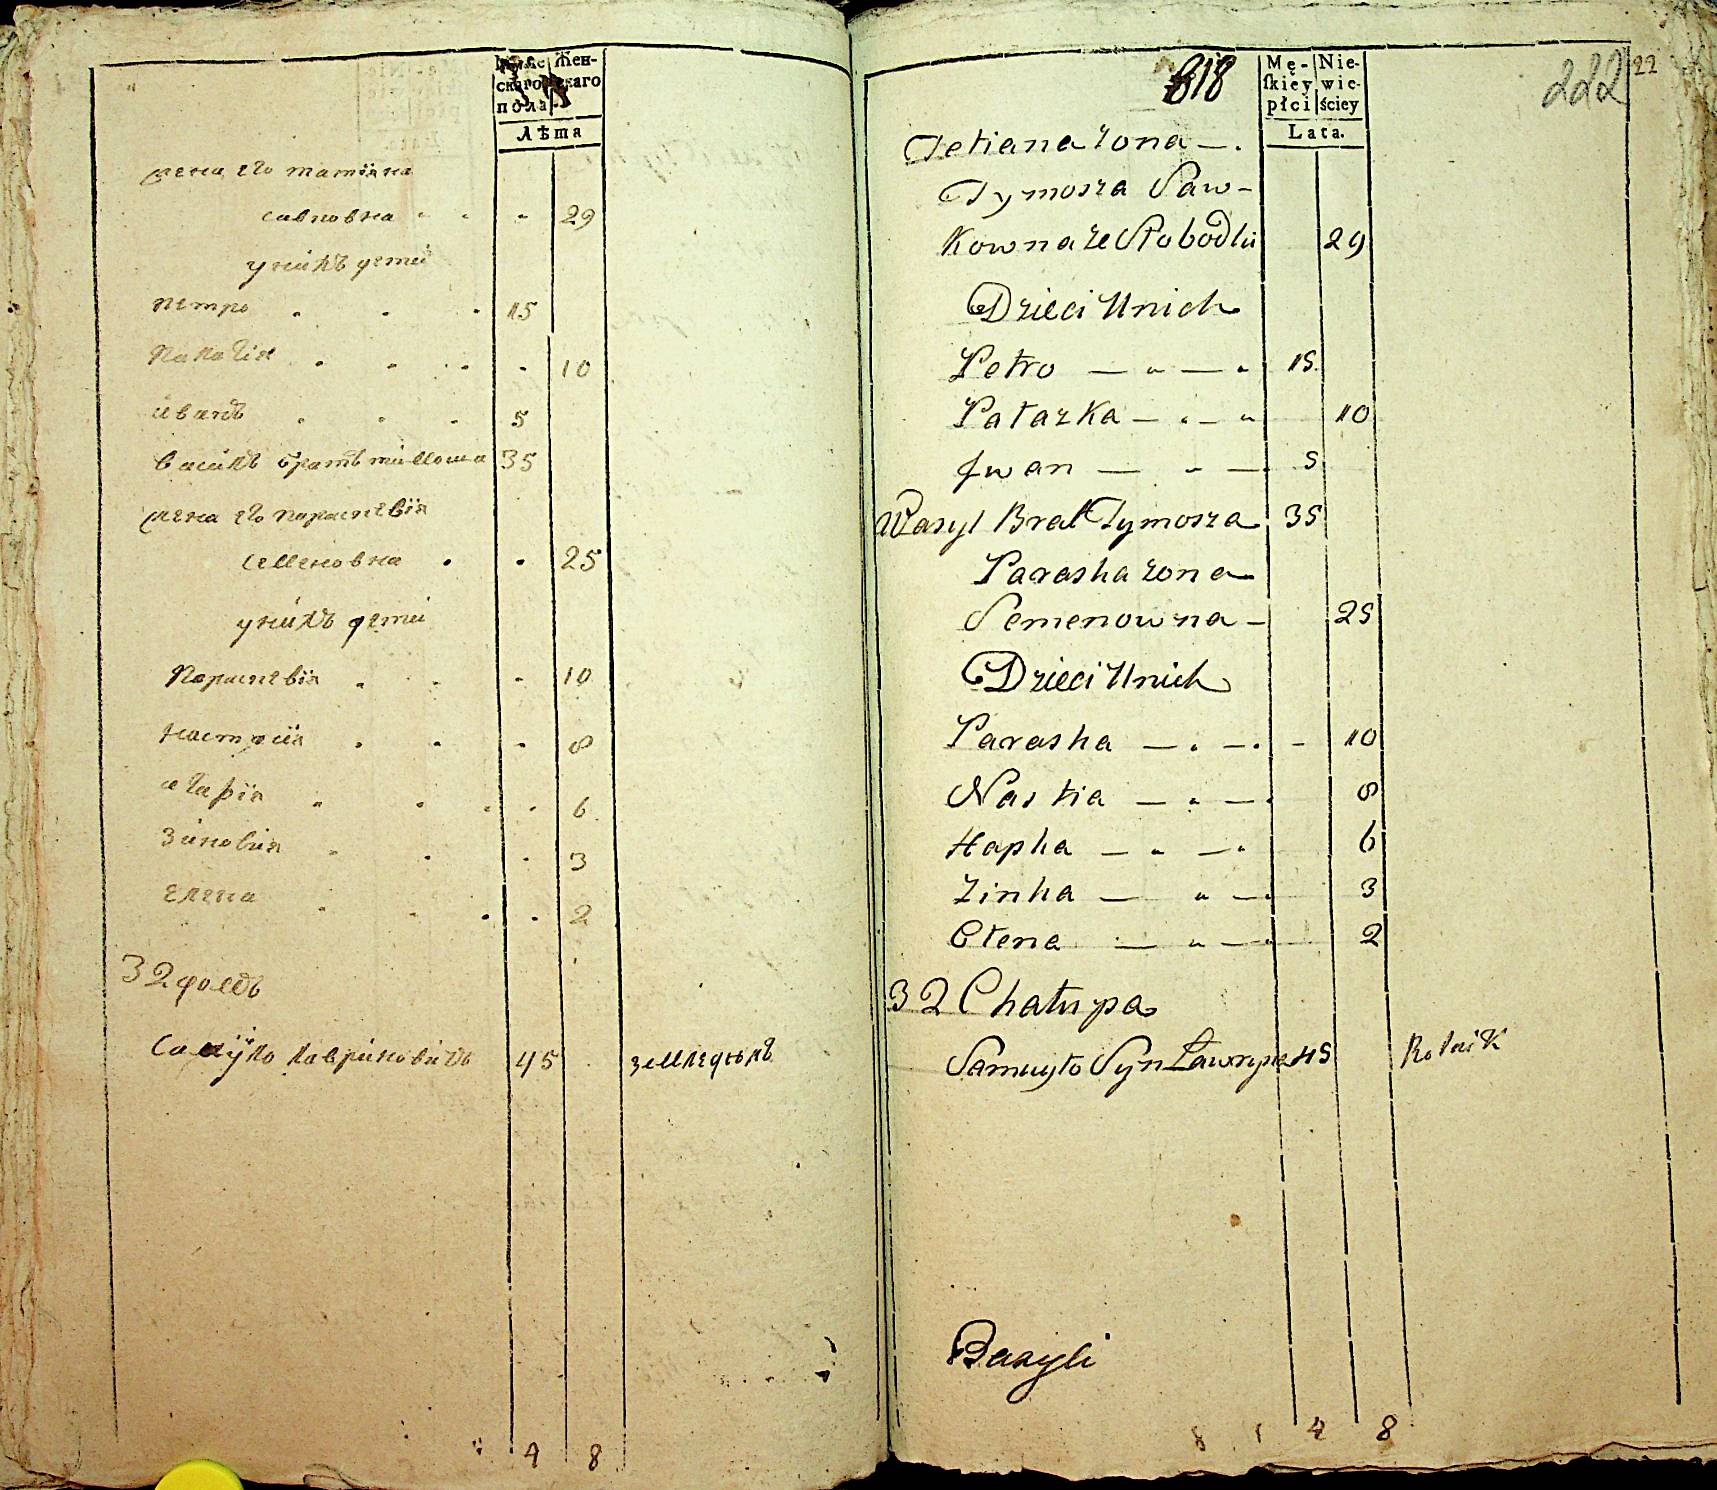 Мужескаго пола
Женскаго
Лѣта
жена его татіяна
савковна - - - 29
у нихъ дети
петро . . . 15
Палагія . . . . 10
иванъ . . . 5
василь братъ тимоша 35
жена его параскевія
семеновна . . 25
у нихъ дети
Параскевія . . - 10
Настасія . . - 8
агафія . . . . 6
Зиновия . . . 3
елена . . . . 2
32 домъ
Самуйло лавриновичъ 45 земледелъ
4 8
818
222
22
Mę-skiey płci
Nie-wie-ściey
Lata.
Tetiana żona — .
Tymosza Saw-
kowna ze Słobodki 29
Dzieci Unich
Petro — „ — „ 15
Pałazka — . — „ 10
Jwan — „ — 5
Wasyl Brat Tymosza 35
Paraska żona
Semenowna — 25
Dzieci Unich
Paraska — . — . - 10
Nastia — „ — . 8
Hapka — „ — „ 6
Zinka — „ — . 3
Ołena — „ — „ 2
32 Chałupa
Samuyło Syn Ławryna 45 Rolnik
Bazyli
4 8